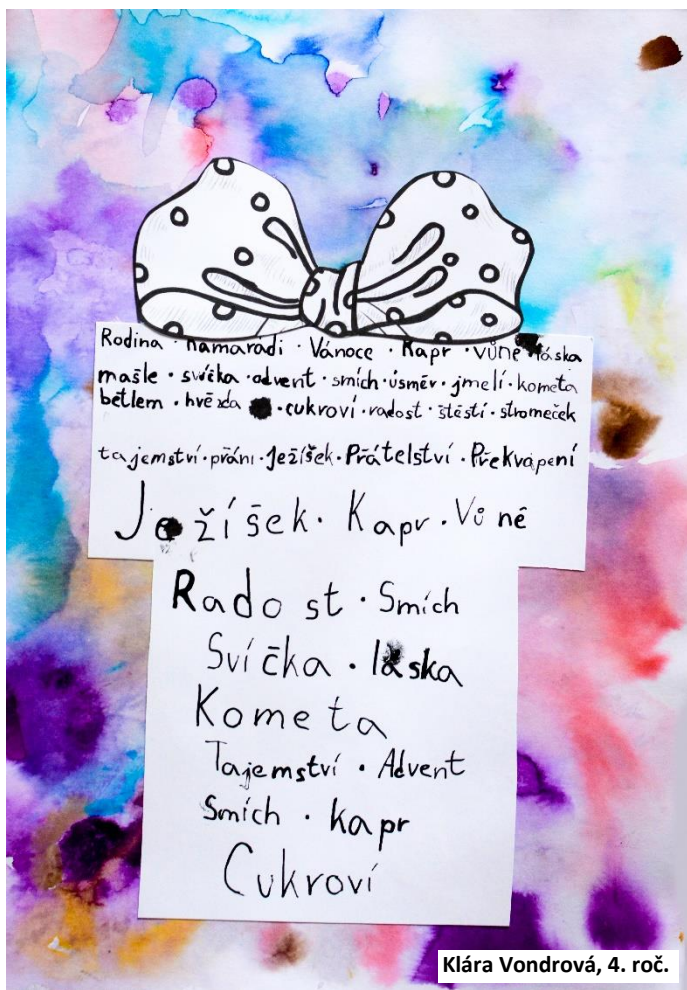 Rodina · kamarádi · Vánoce · Kapr · vůně · láska
mašle · svíčka · advent · smích · úsměv · jmelí · kometa
betlem · hvězda · cukroví · radost · štěstí · stromeček
tajemství · přání · Ježíšek · Přátelství · Překvapení
Ježíšek · Kapr · Vůně
Radost · Smích
Svíčka · láska
Kometa
Tajemství · Advent
Smích · kapr
Cukroví
Klára Vondrová, 4. roč.